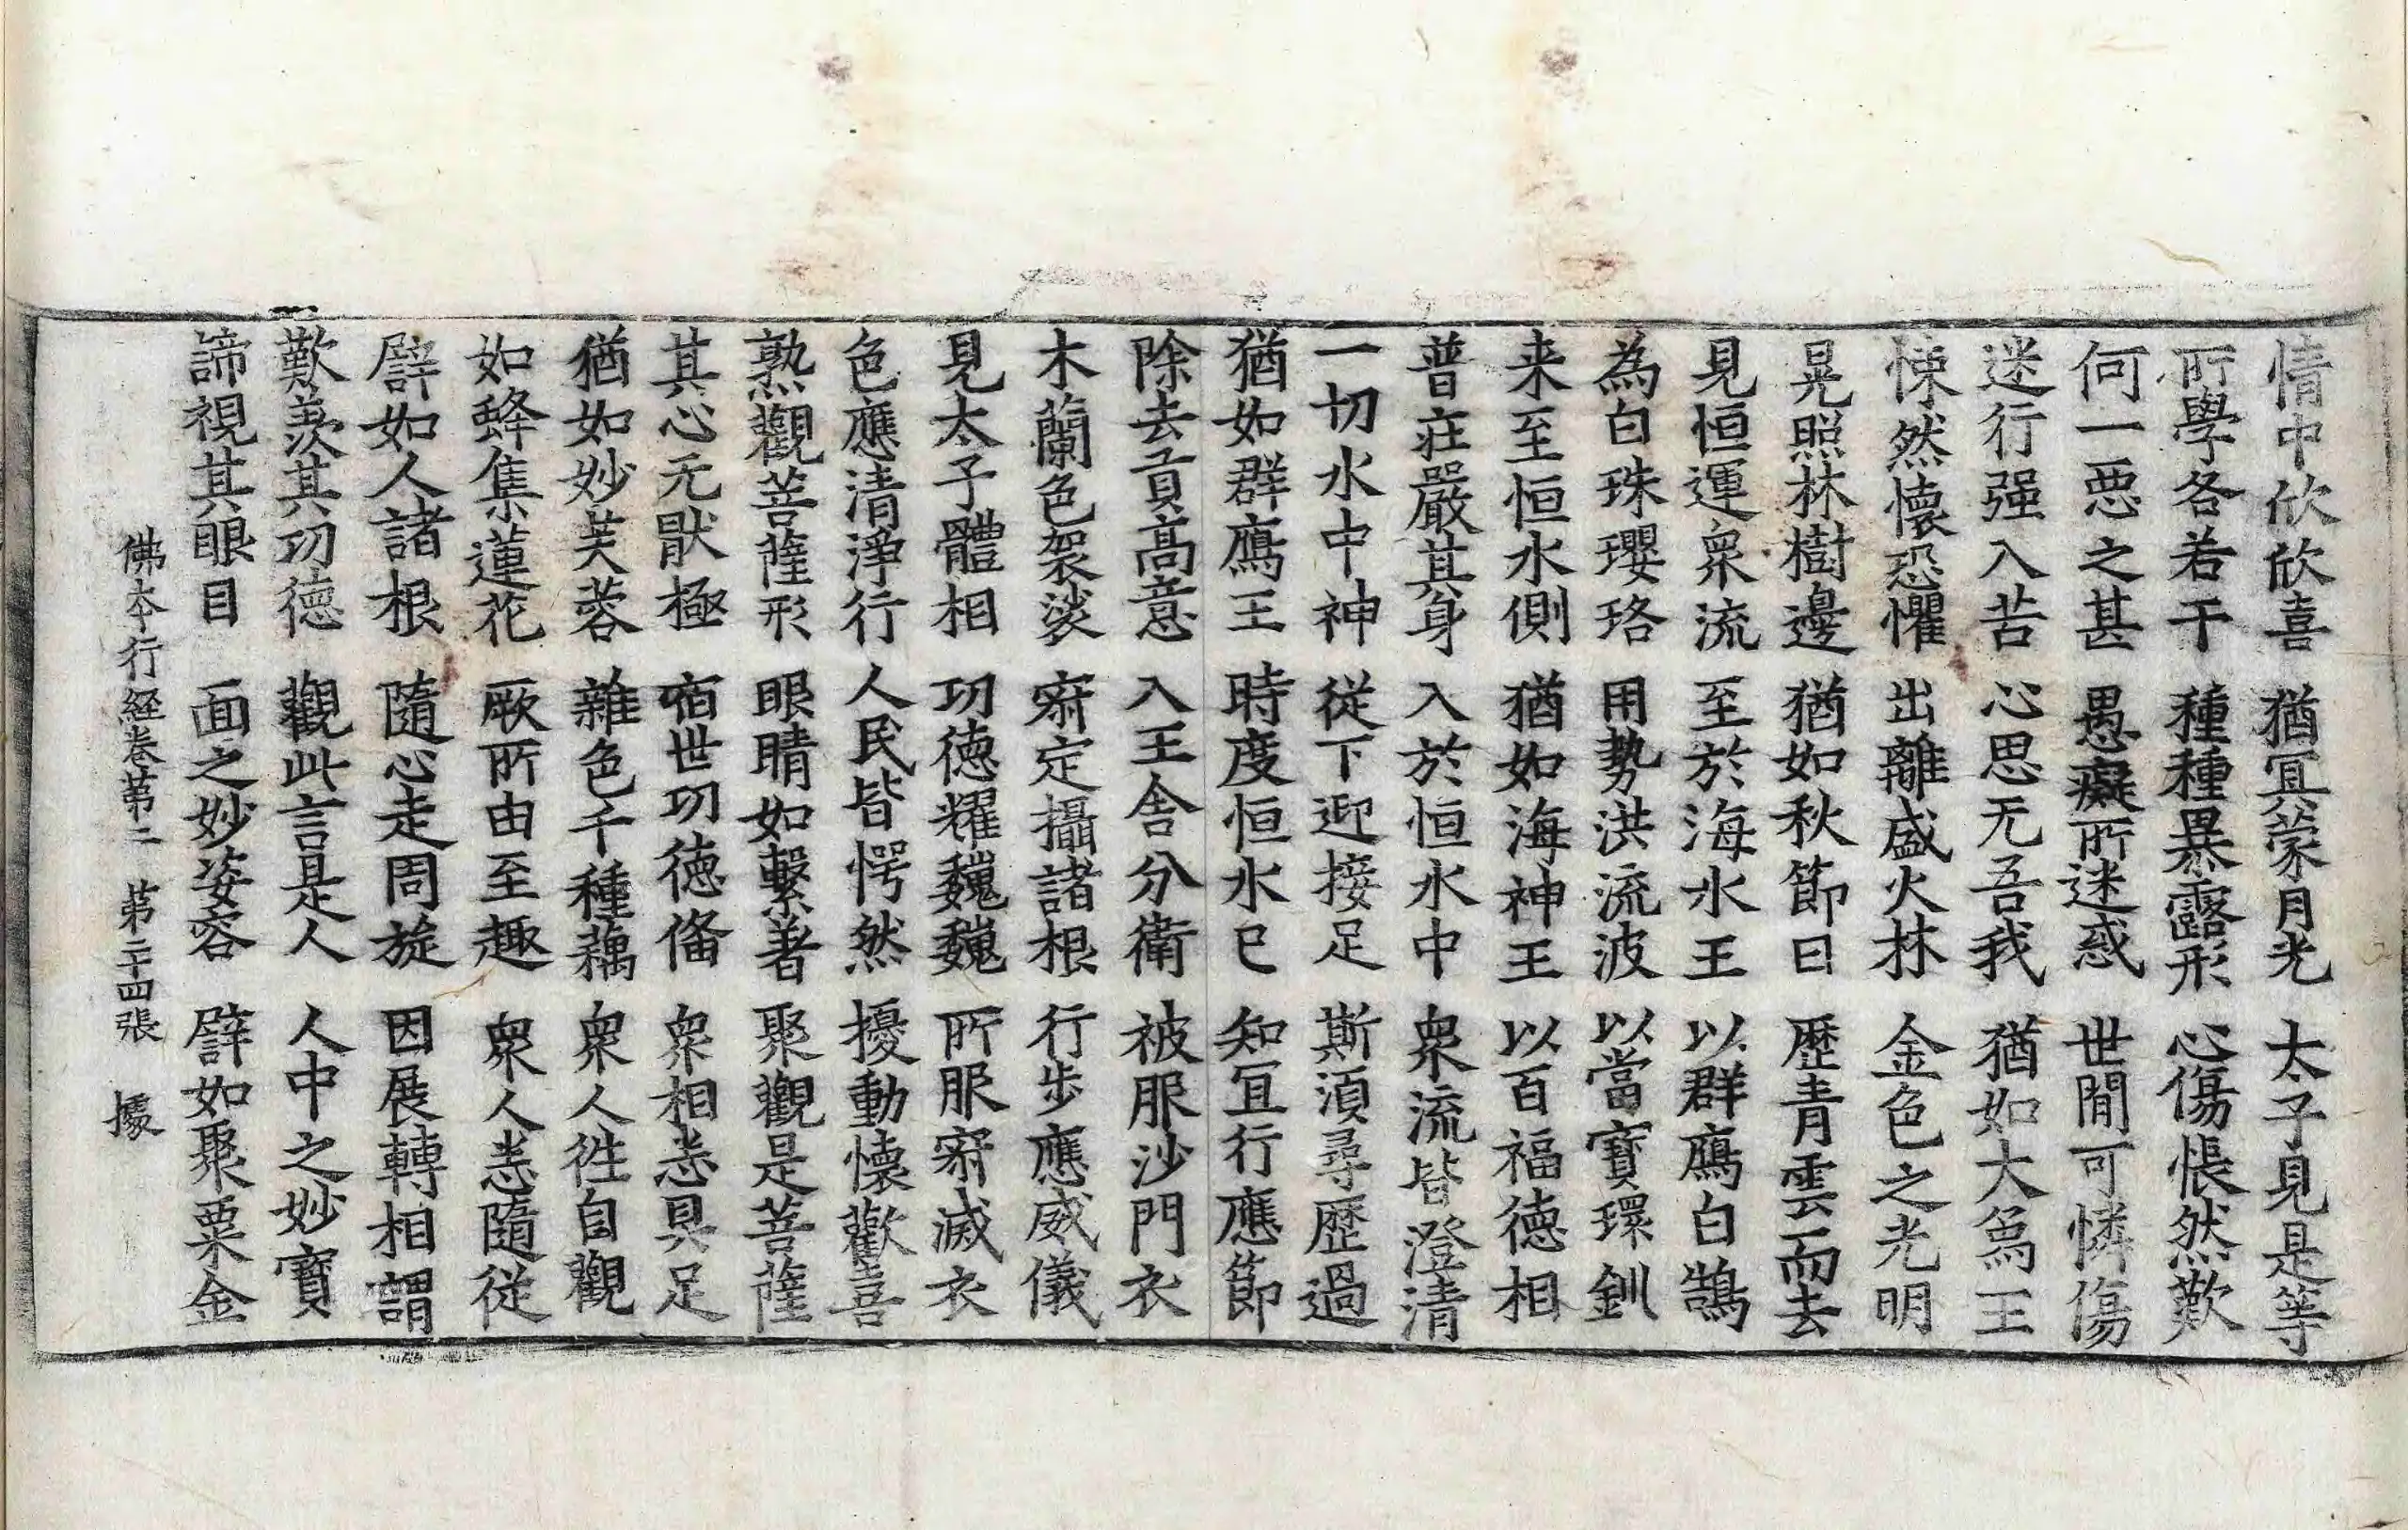 情中欣欣喜　猶冝蒙月光　太子見是等
所學各若干　種種暴露形　心傷悵然歎
何一惡之甚　愚癡所迷惑　世閒可憐傷
迷行强入苦　心思无吾我　猶如大爲王
悚然懷恐懼　出離盛火林　金色之光明
晃照林樹邊　猶如秋節日　歷青雲而去
見恒運衆流　至於海水王　以群鴈白鵠
為白珠瓔珞　用勢洪流波　以當寶環釧
来至恒水側　猶如海神王　以百福德相
普莊嚴其身　入於恒水中　衆流皆澄清
一切水中神　從下迎接足　斯湏尋歷過
猶如群鴈王　時度恒水已　知冝行應節
除去貢高意　入王舍分衛　被服沙門衣
木蘭色袈裟　寂定攝諸根　行步應威儀
見太子體相　功德耀巍巍　所服寂滅衣
色應清淨行　人民皆愕然　擾動懷歡喜
熟觀菩薩形　眼睛如繫著　聚觀是菩薩
其心无猒極　宿世功德俻　衆相悉具足
猶如妙芙蓉　雜色千種藕　衆人徃自觀
如蜂集蓮花　厥所由至趣　衆人悉隨從
譬如人諸根　隨心走周旋　因展轉相謂
歎羡其功德　觀此言是人　人中之妙寶
諦視其眼目　面之妙姿容　譬如聚粟金
佛本行經卷第二　第二十四張　據